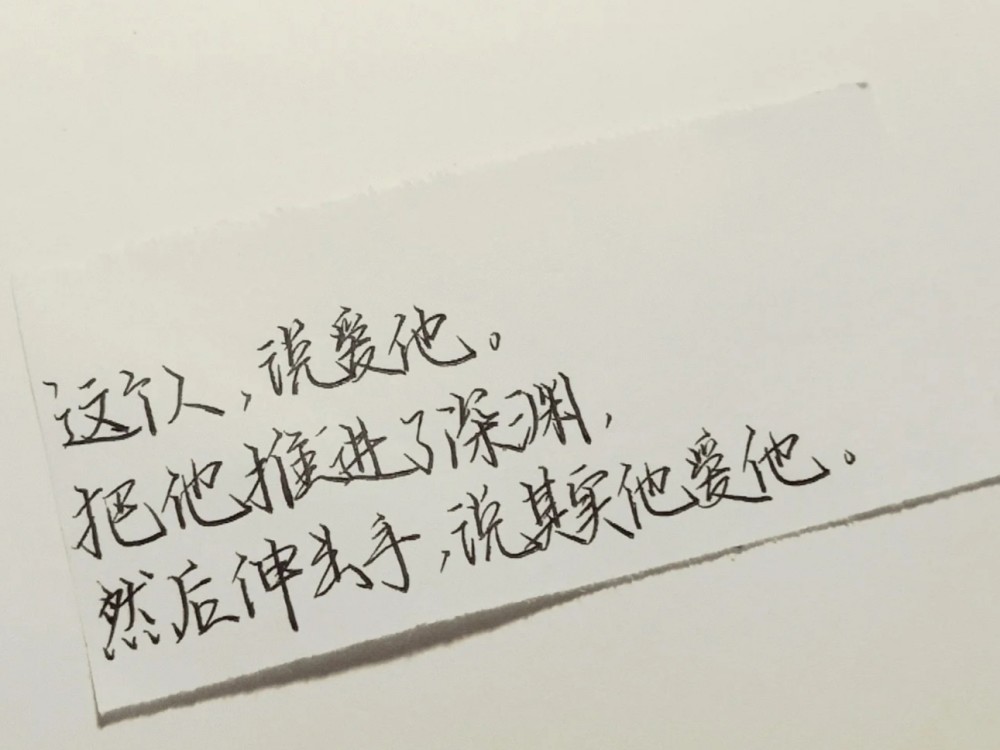 这个人,说爱他。
把他推进了深渊,
然后伸出手,说其实他爱他。